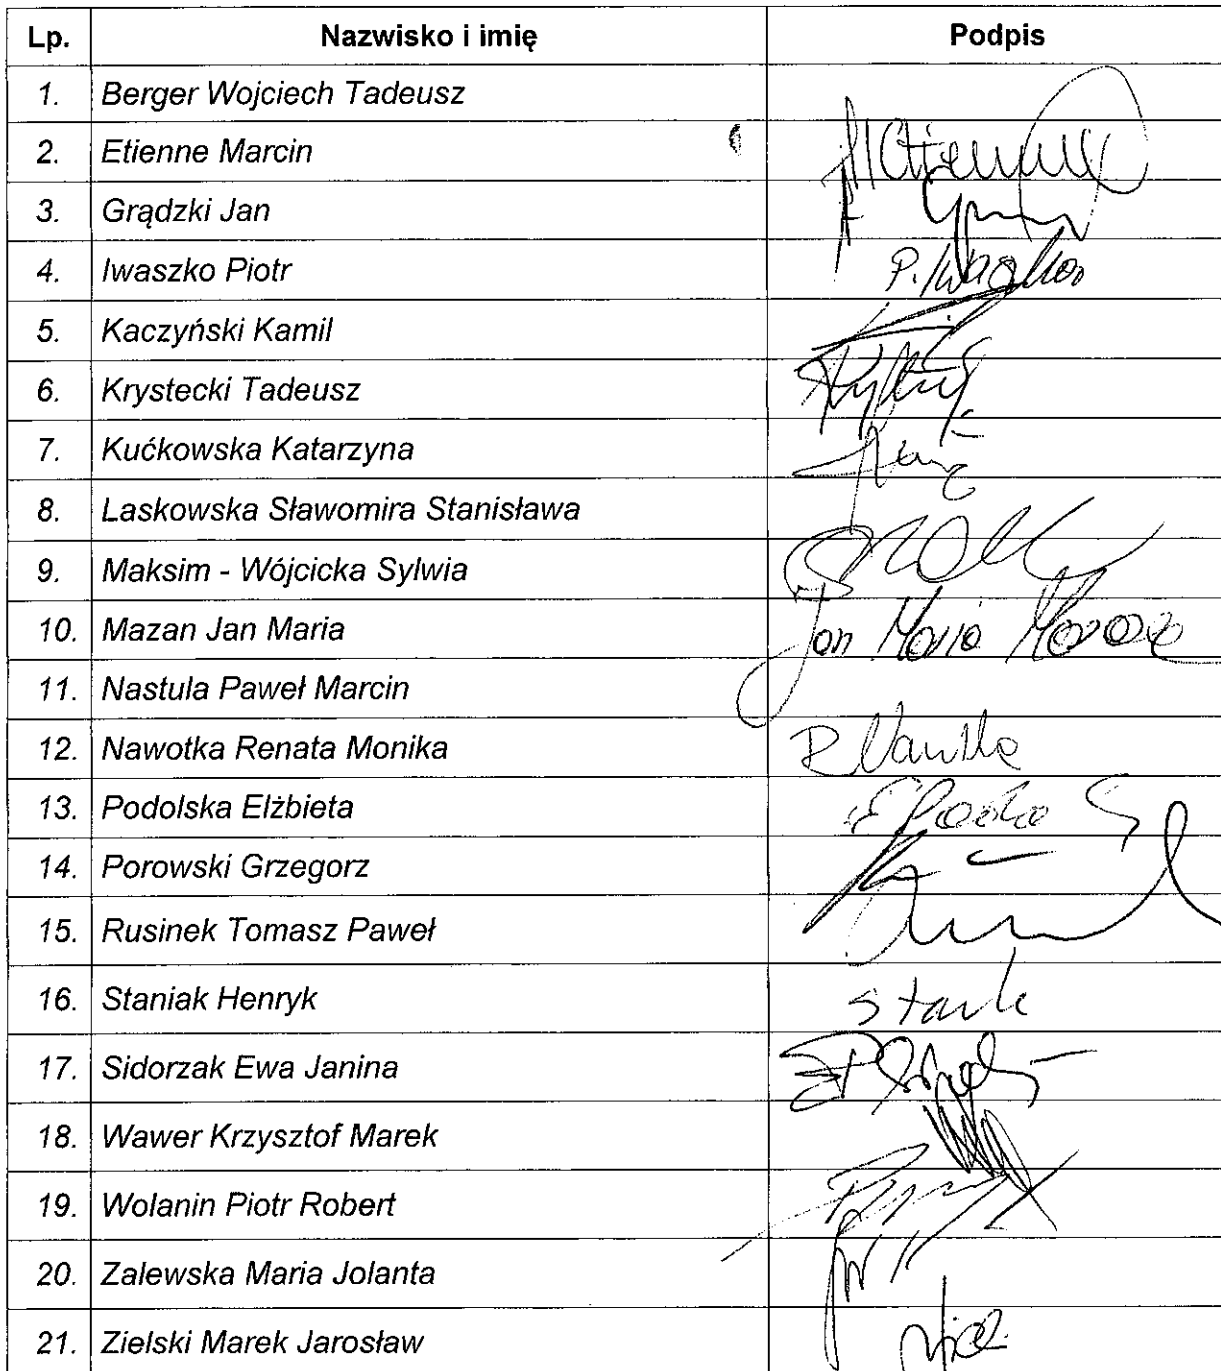 Lp. Nazwisko i imię Podpis
1. Berger Wojciech Tadeusz
2. Etienne Marcin
3. Grądzki Jan
4. Iwaszko Piotr P. Iwaszko
5. Kaczyński Kamil
6. Krystecki Tadeusz
7. Kućkowska Katarzyna
8. Laskowska Sławomira Stanisława
9. Maksim - Wójcicka Sylwia
10. Mazan Jan Maria Jan Maria Mazan
11. Nastula Paweł Marcin
12. Nawotka Renata Monika
13. Podolska Elżbieta
14. Porowski Grzegorz
15. Rusinek Tomasz Paweł
16. Staniak Henryk
17. Sidorzak Ewa Janina
18. Wawer Krzysztof Marek
19. Wolanin Piotr Robert
20. Zalewska Maria Jolanta
21. Zielski Marek Jarosław